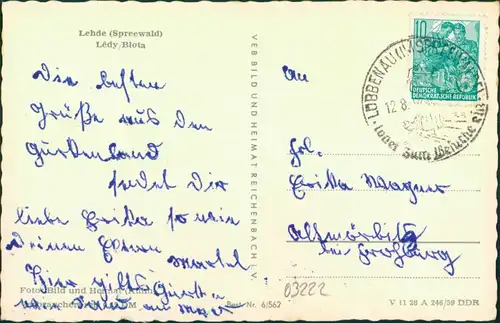 Lehde (Spreewald)
Lědy/Błota
Die besten
Grüße aus dem
Gurkenland
sendet Dir
liebe Erika sowie
Deinen Eltern
Hier gibts Gurken
VEB BILD UND HEIMAT REICHENBACH I. V.
An
Frl.
Erika Wagner
Altmörbitz
bei Frohburg
10
DEUTSCHE
DEMOKRATISCHE REPUBLIK
LÜBBENAU (SPREEWALD)
12.8.
ladet zum Besuche ein
Foto: Bild und Heimat
Best Nr. 6/562
03222
V 11 28 A 246/59 DDR